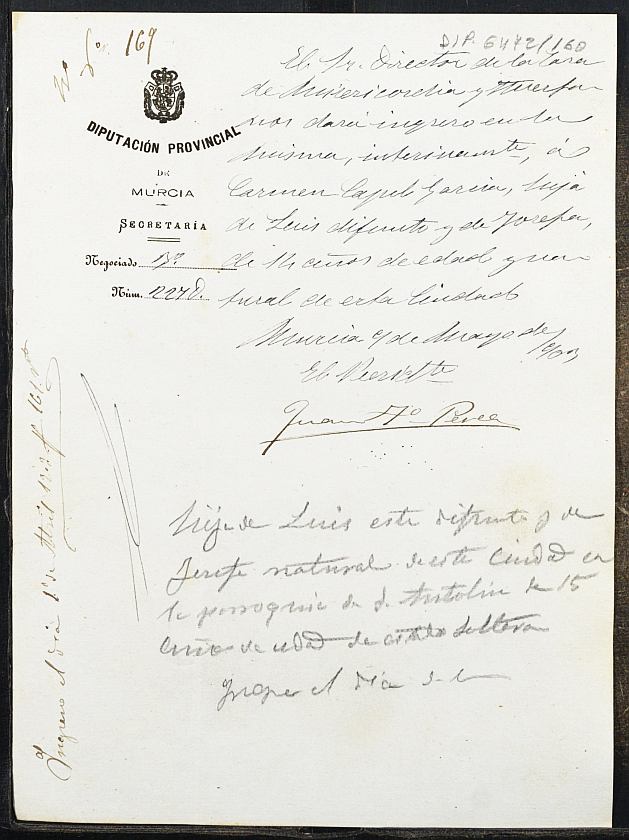 Nº 169
DIP. 6472/160
DIPUTACIÓN PROVINCIAL
DE
MURCIA
SECRETARÍA
Negociado 1º
Núm. 2278.
El Sr. Director de la Casa
de Misericordia y Huerfa-
nos dará ingreso en la
misma, interinamte, á
Carmen Capel Garcia, hija
de Luis difunto y de Josefa,
de 14 años de edad y na-
tural de esta Ciudad
Murcia 9 de Mayo de
1903
El Vicepresidte
Juan Perea
hija de Luis este difunto y de
Josefa natural de esta Ciudad en
la parroquia de S. Antolin de 15
años de edad de estado soltera
Ingreso el dia
Ingreso el dia